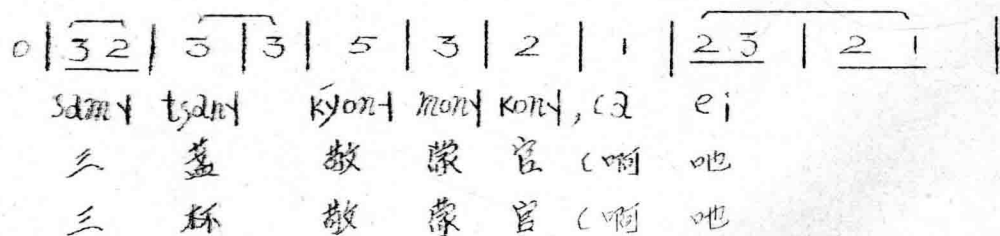 0 | 3 2 | 3 | 3 | 5 | 3 | 2 | 1 | 2 3 | 2 1 |
samɣ tşanɣ kyon˧ monɣ konɣ, ca ei
三 盏 敬 蒙 官 (啊 吔
三 杯 敬 蒙 官 (啊 吔